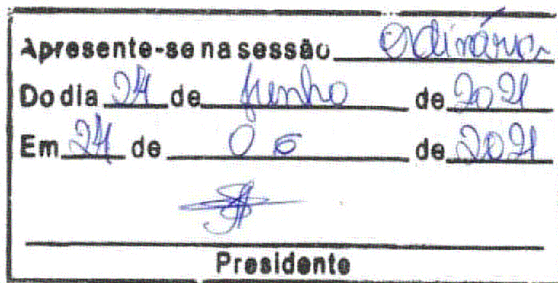 Apresente-se na sessão ordinária
Do dia 24 de junho de 2021
Em 24 de 06 de 2021
Presidente